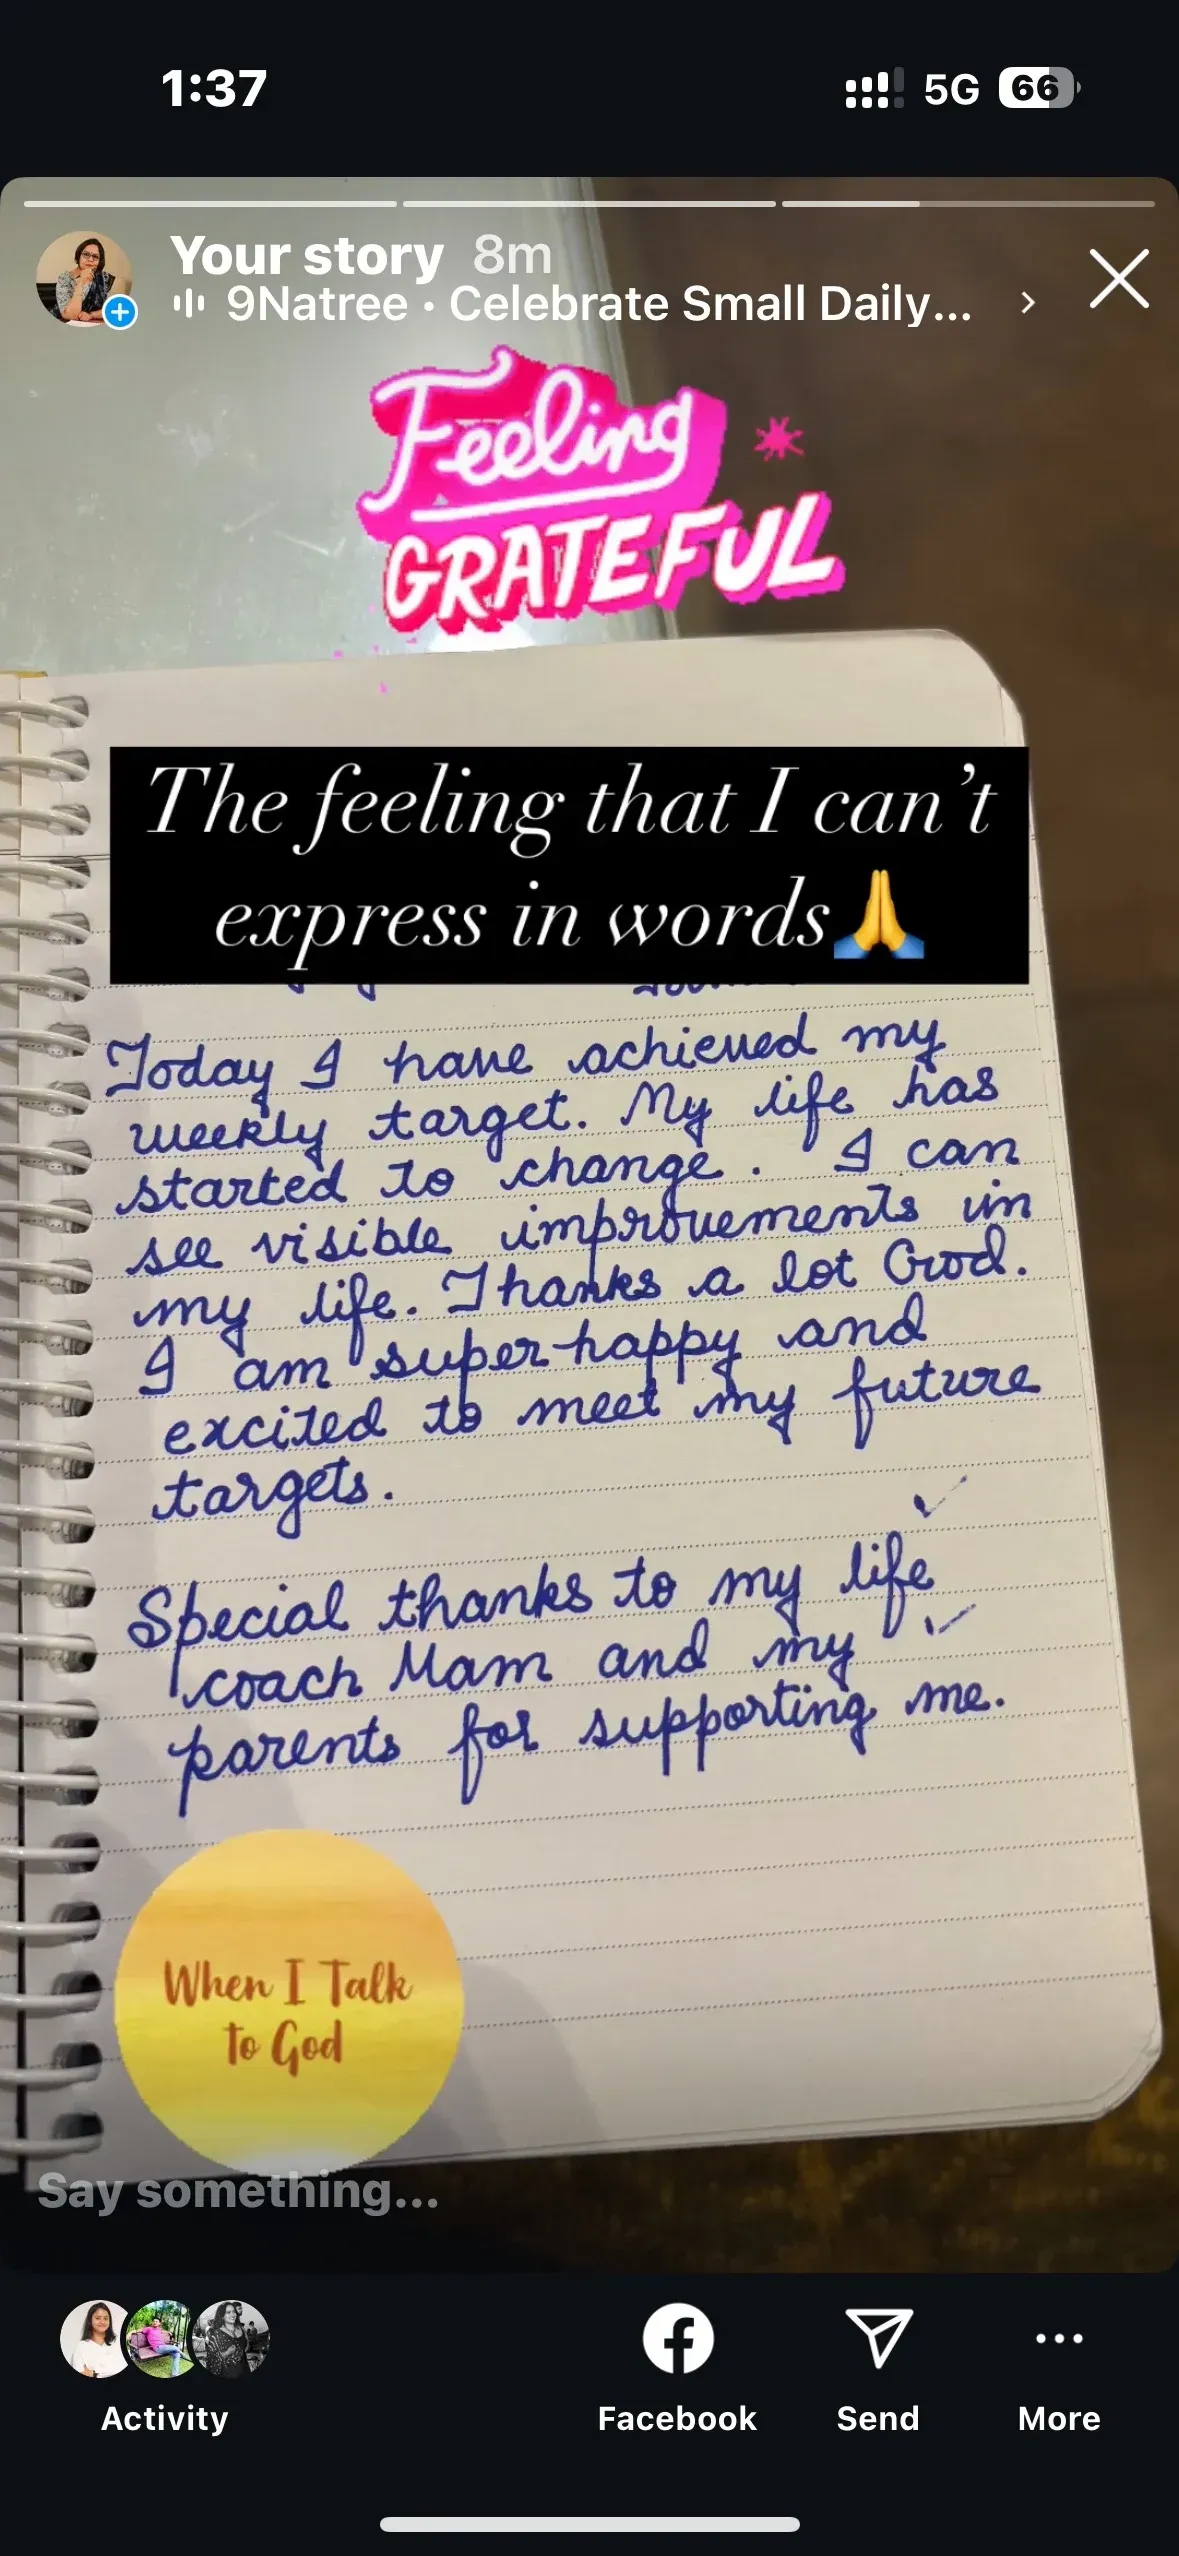 1:37
5G
66
Your story 8m
9Natree • Celebrate Small Daily...
Feeling
GRATEFUL
The feeling that I can't
express in words🙏
Today I have achieved my
weekly target. My life has
started to change. I can
see visible improvements in
my life. Thanks a lot God.
I am super-happy and
excited to meet my future
targets.
Special thanks to my life
coach Mam and my
parents for supporting me.
When I Talk
to God
Say something...
Activity
Facebook
Send
More